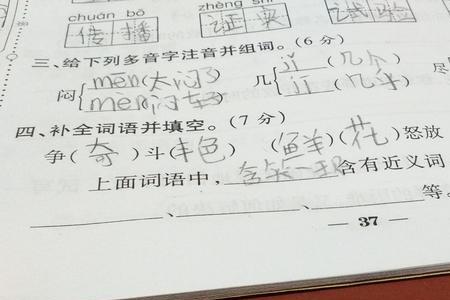 chuán bō zhèng shí
传播 证实 试验
三、给下列多音字注音并组词。(6分)
闷{ mēn(太闷了) 几{ jǐ(几个) 尽
mèn(闷 jī(几乎)
四、补全词语并填空。(7分)
争(奇)斗(色) (鲜)(花)怒放
上面词语中,含 含有近义词
、 、 等。
— 37 —